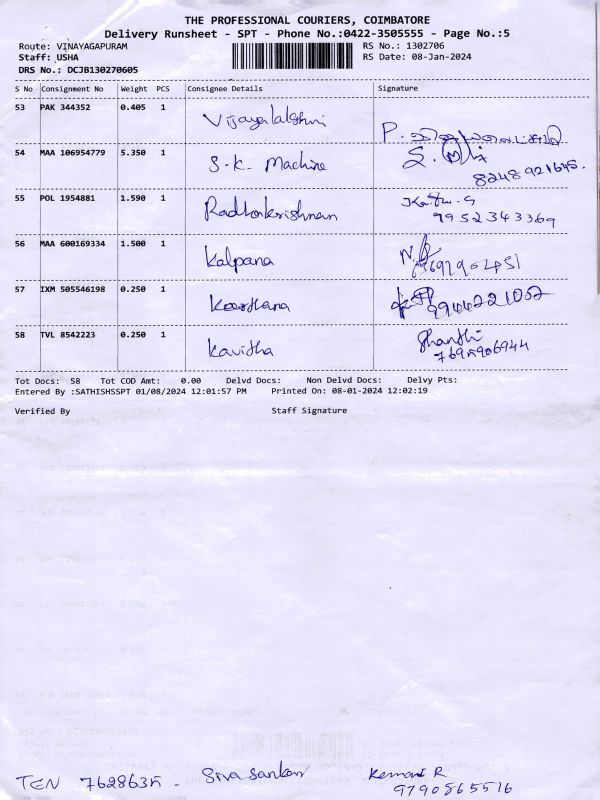 THE PROFESSIONAL COURIERS, COIMBATORE
Delivery Runsheet - SPT - Phone No.:0422-3505555 - Page No.:5
Route: VINAYAGAPURAM RS No.: 1302706
Staff: USHA RS Date: 08-Jan-2024
DRS No.: DCJB130270605
S No Consignment No Weight PCS Consignee Details Signature
53 PAK 344352 0.405 1 Vijayalakshmi
54 MAA 106954779 5.350 1 S.K. Machine
8248921645.
55 POL 1954881 1.590 1 Radhakrishnan
9952343369
56 MAA 600169334 1.500 1 Kalpana
57 IXM 505546198 0.250 1 Keerthana
9944221052
58 TVL 8542223 0.250 1 Kavitha Shanthi
7695906944
Tot Docs: 58 Tot COD Amt: 0.00 Delvd Docs: Non Delvd Docs: Delvy Pts:
Entered By :SATHISHSSPT 01/08/2024 12:01:57 PM Printed On: 08-01-2024 12:02:19
Verified By Staff Signature
TEN Siva Sankar R
9790565516